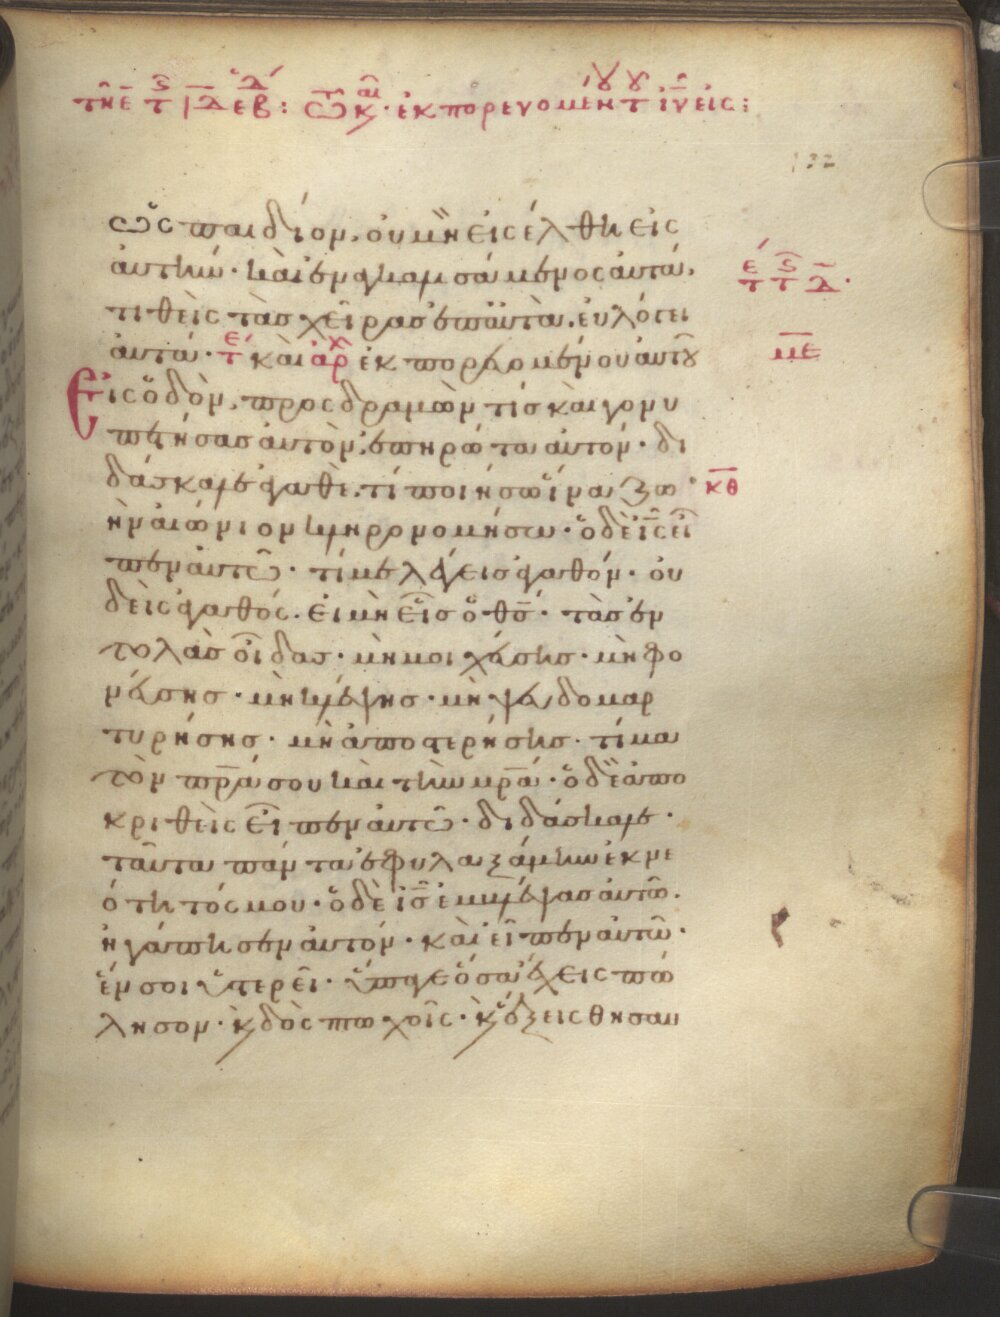 132
ὡς παιδίον, οὐ μὴ εἰσέλθη εἰς
αὐτήν· καὶ ἐναγκαλισάμενος αὐτά,
τιθεὶς τὰς χεῖρας ἐπ' αὐτὰ, εὐλόγει
αὐτά· τε καὶ ἀρχ ἐκπορευομένου αὐτοῦ
Εἰς ὁδὸν, προσδραμὼν τίς καὶ γονυ
πετήσας αὐτὸν, ἐπηρώτα αὐτόν· δι
δάσκαλε ἀγαθὲ, τί ποιήσω ἵνα ζω
κθ
ὴν αἰώνιον κληρονομήσω· ὁ δὲ ις εἶ
πεν αὐτῶ· τί με λέγεις ἀγαθόν· οὐ
δεὶς ἀγαθός· εἰ μὴ εἷς ὁ θς· τὰς ἐν
τολὰς οἶδας· μὴ μοιχεύσης· μὴ φο
νεύσης· μὴ κλέψης· μὴ ψευδομαρ
τυρήσης· μὴ ἀποστερήσης· τίμα
τὸν πρα σου καὶ τὴν μρα· ὁ δὲ ἀπο
κριθεὶς εἶπεν αὐτῶ· διδάσκαλε·
ταῦτα πάντα ἐφυλαξάμην ἐκ νε
ότητός μου· ὁ δὲ ις ἐμβλέψας αὐτῶ·
ἠγάπησεν αὐτόν· καὶ εἶπεν αὐτῶ·
ἕν σοι ὑστερεῖ· ὕπαγε ὅσα ἔχεις πώ
λησον· κ δὸς πτωχοῖς· κ ἕξεις θησαυ
με